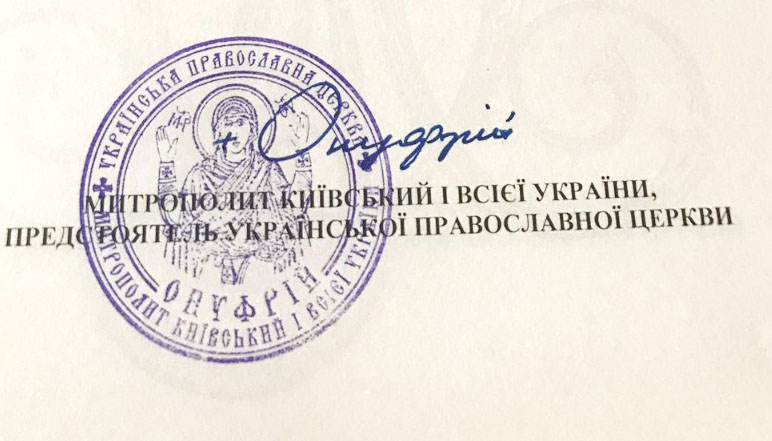 ✠ УКРАЇНСЬКА ПРАВОСЛАВНА ЦЕРКВА ✠
МИТРОПОЛИТ КИЇВСЬКИЙ І ВСІЄЇ УКРАЇНИ
ОНУФРІЙ
+ Онуфрій
МИТРОПОЛИТ КИЇВСЬКИЙ І ВСІЄЇ УКРАЇНИ,
ПРЕДСТОЯТЕЛЬ УКРАЇНСЬКОЇ ПРАВОСЛАВНОЇ ЦЕРКВИ